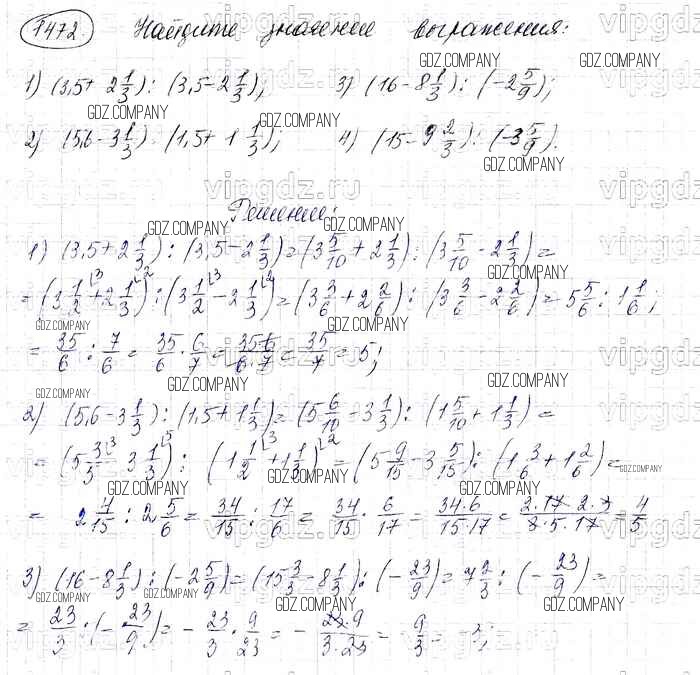 1472. Найдите значение выражения:
1) (3,5 + 2 1/3) : (3,5 - 2 1/3); 3) (16 - 8 1/3) : (-2 5/9);
2) (5,6 - 3 1/3) : (1,5 + 1 1/3); 4) (15 - 9 2/3) : (-3 5/9).
Решение:
1) (3,5 + 2 1/3) : (3,5 - 2 1/3) = (3 5/10 + 2 1/3) : (3 5/10 - 2 1/3) =
= (3 1/2 + 2 1/3) : (3 1/2 - 2 1/3) = (3 3/6 + 2 2/6) : (3 3/6 - 2 2/6) = 5 5/6 : 1 1/6;
= 35/6 : 7/6 = 35/6 · 6/7 = 35·6/6·7 = 35/7 = 5;
2) (5,6 - 3 1/3) : (1,5 + 1 1/3) = (5 6/10 - 3 1/3) : (1 5/10 + 1 1/3) =
= (5 3/3 - 3 1/3) : (1 1/2 + 1 1/3) = (5 9/15 - 3 5/15) : (1 3/6 + 1 2/6) =
= 2 4/15 : 2 5/6 = 34/15 : 17/6 = 34/15 · 6/17 = 34·6/15·17 = 2·17·2·3/3·5·17 = 4/5
3) (16 - 8 1/3) : (-2 5/9) = (15 3/3 - 8 1/3) : (- 23/9) = 7 2/3 : (- 23/9) =
= 23/3 : (- 23/9) = - 23/3 · 9/23 = - 23·9/3·23 = - 9/3 = -3;
GDZ.COMPANY
vipgdz.ru